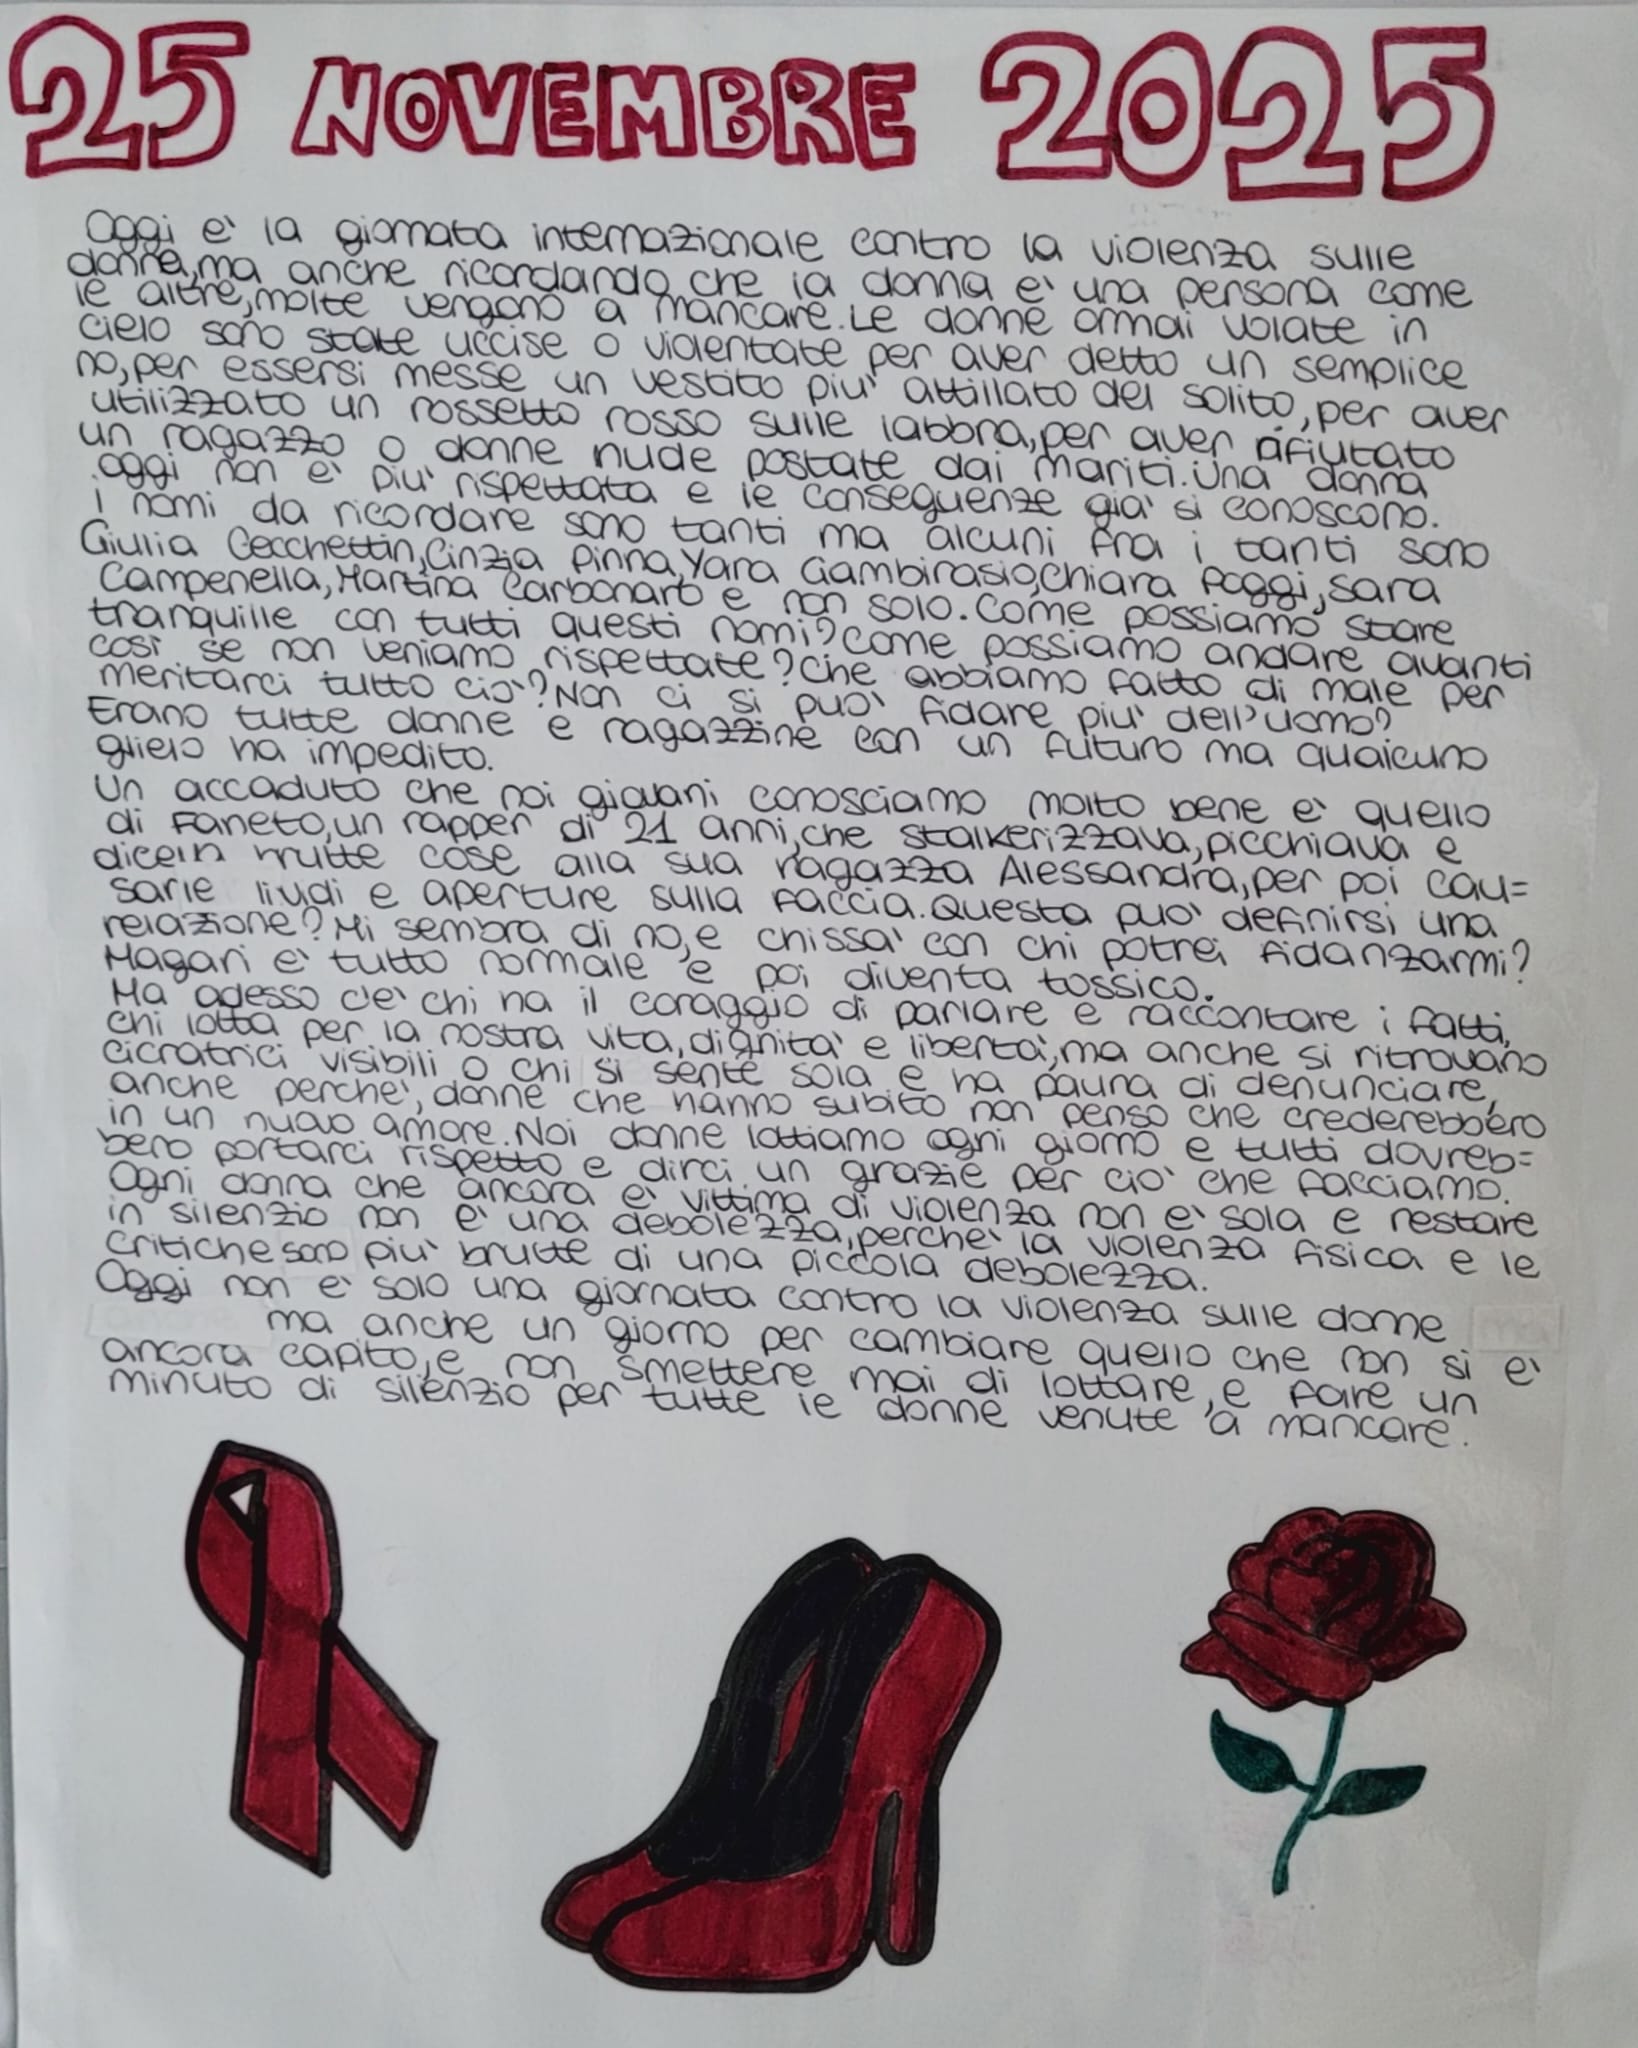 25 NOVEMBRE 2025
Oggi e' la giornata internazionale contro la violenza sulle
donne, ma anche ricordando che la donna e' una persona come
le altre, molte vengono a mancare. Le donne ormai volate in
cielo sono state uccise o violentate per aver detto un semplice
no, per essersi messe un vestito piu' attillato del solito, per aver
utilizzato un rossetto rosso sulle labbra, per aver rifiutato
un ragazzo o donne nude postate dai mariti. Una donna
oggi non e' piu' rispettata e le conseguenze gia' si conoscono.
I nomi da ricordare sono tanti ma alcuni fra i tanti sono
Giulia Cecchettin, Cinzia Pinna, Yara Gambirasio, Chiara Poggi, Sara
Campenella, Martina Carbonaro e non solo. Come possiamo stare
tranquille con tutti questi nomi? Come possiamo andare avanti
cosi' se non veniamo rispettate? Che abbiamo fatto di male per
meritarci tutto cio'? Non ci si puo' fidare piu' dell'uomo?
Erano tutte donne e ragazzine con un futuro ma qualcuno
glielo ha impedito.
Un accaduto che noi giovani conosciamo molto bene e' quello
di Faneto, un rapper di 21 anni, che stalkerizzava, picchiava e
brutte cose alla sua ragazza Alessandra, per poi cau=
sarle lividi e aperture sulla faccia. Questa puo' definirsi una
relazione? Mi sembra di no, e chissa' con chi potrei fidanzarmi?
Magari e' tutto normale e poi diventa tossico.
Ma adesso c'e' chi ha il coraggio di parlare e raccontare i fatti,
chi lotta per la nostra vita, dignita' e liberta', ma anche si ritrovano
cicratrici visibili o chi si sente sola e ha paura di denunciare,
anche perche', donne che hanno subito non penso che crederebbero
in un nuovo amore. Noi donne lottiamo ogni giorno e tutti dovreb=
bero portarci rispetto e dirci un grazie per cio' che facciamo.
Ogni donna che ancora e' vittima di violenza non e' sola e restare
in silenzio non e' una debolezza, perche' la violenza fisica e le
critiche sono piu' brutte di una piccola debolezza.
Oggi non e' solo una giornata contro la violenza sulle donne
ma anche un giorno per cambiare quello che non si e'
ancora capito, e non smettere mai di lottare, e fare un
minuto di silenzio per tutte le donne venute a mancare.